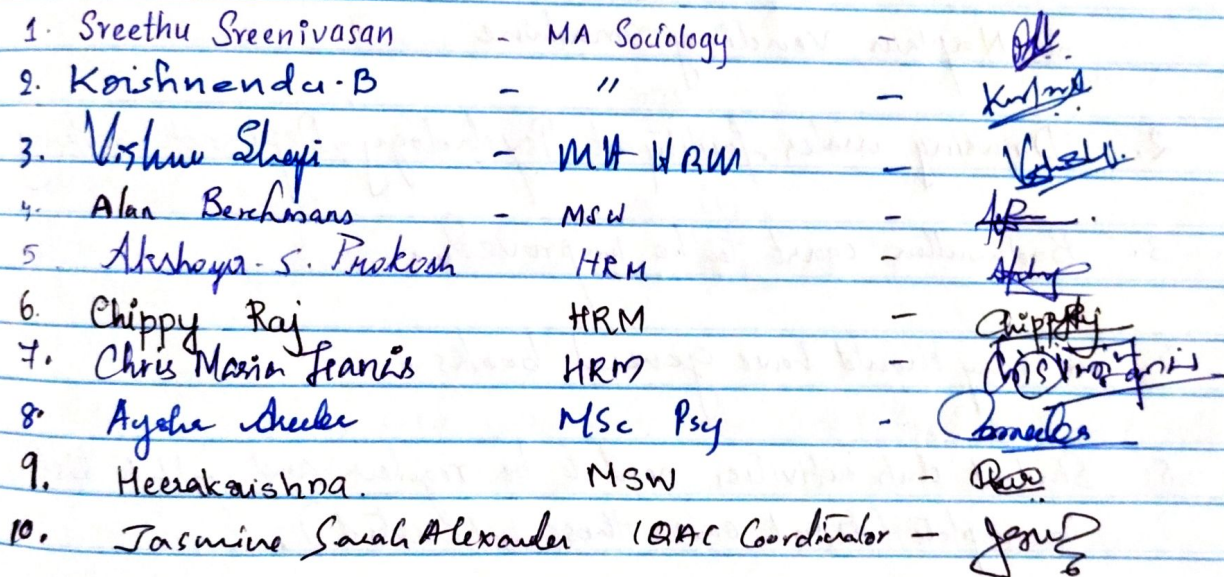 1. Sreethu Sreenivasan - MA Sociology -
2. Krishnendu.B - " -
3. Vishnu Shaji - MA HRM -
4. Alan Berchmans - MSW -
5 Akshaya. S. Prakash HRM -
6. Chippy Raj HRM -
7. Chris Maria Francis HRM -
8. Aysha MSc Psy -
9. Heerakrishna. MSW -
10. Jasmine Sarah Alexander IQAC Coordinator -